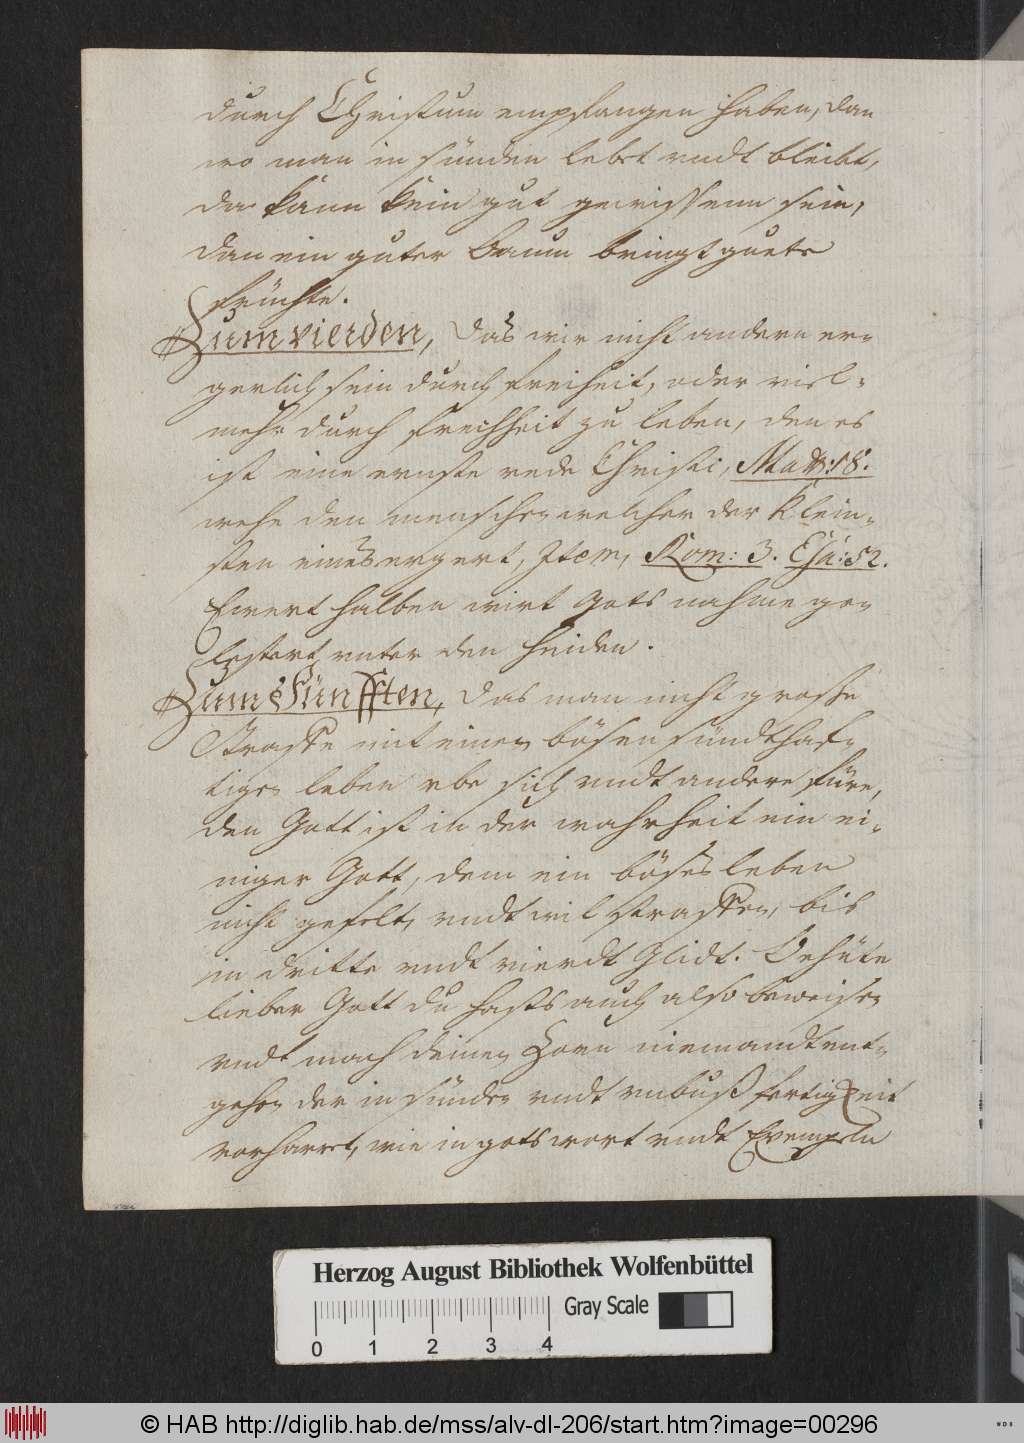 durch Christum empfangen haben, dan
wo man in sünden lebet undt bleibt,
da kann kein gut gewissenn sein,
dan ein guter baum bringt guete
früchte.
Zum vierden, Das wir nicht andern er-
gerlich sein durch freiheit, oder viel-
mehr durch frechheit zu leben, den es
ist eine ernste rede Christi, Matth: 18.
wehe den menschen welcher der klein-
sten eines ergert, Item, Rom: 3. Esa: 52.
Ewert halben wirt Gots nahme ge-
lestert unter den heiden.
Zum Fünfften, Das man nicht grosse
Straffe mit einen bösen sündthaf-
tigen leben vbe sich undt andere füre,
den Gott ist in der wahrheit ein ei-
niger Gott, dem ein böses leben
nicht gefelt, undt wil straffen, bis
in dritte undt vierdt Glidt. Behüte
lieber Gott du hasts auch also beweisen
undt mach deinen Zorn niemandt ent-
gehen der in sünden undt unbußfertigkeit
vorharret, wie in gots wort undt Exempeln
Herzog August Bibliothek Wolfenbüttel
0 1 2 3 4
Gray Scale
© HAB http://diglib.hab.de/mss/alv-dl-206/start.htm?image=00296